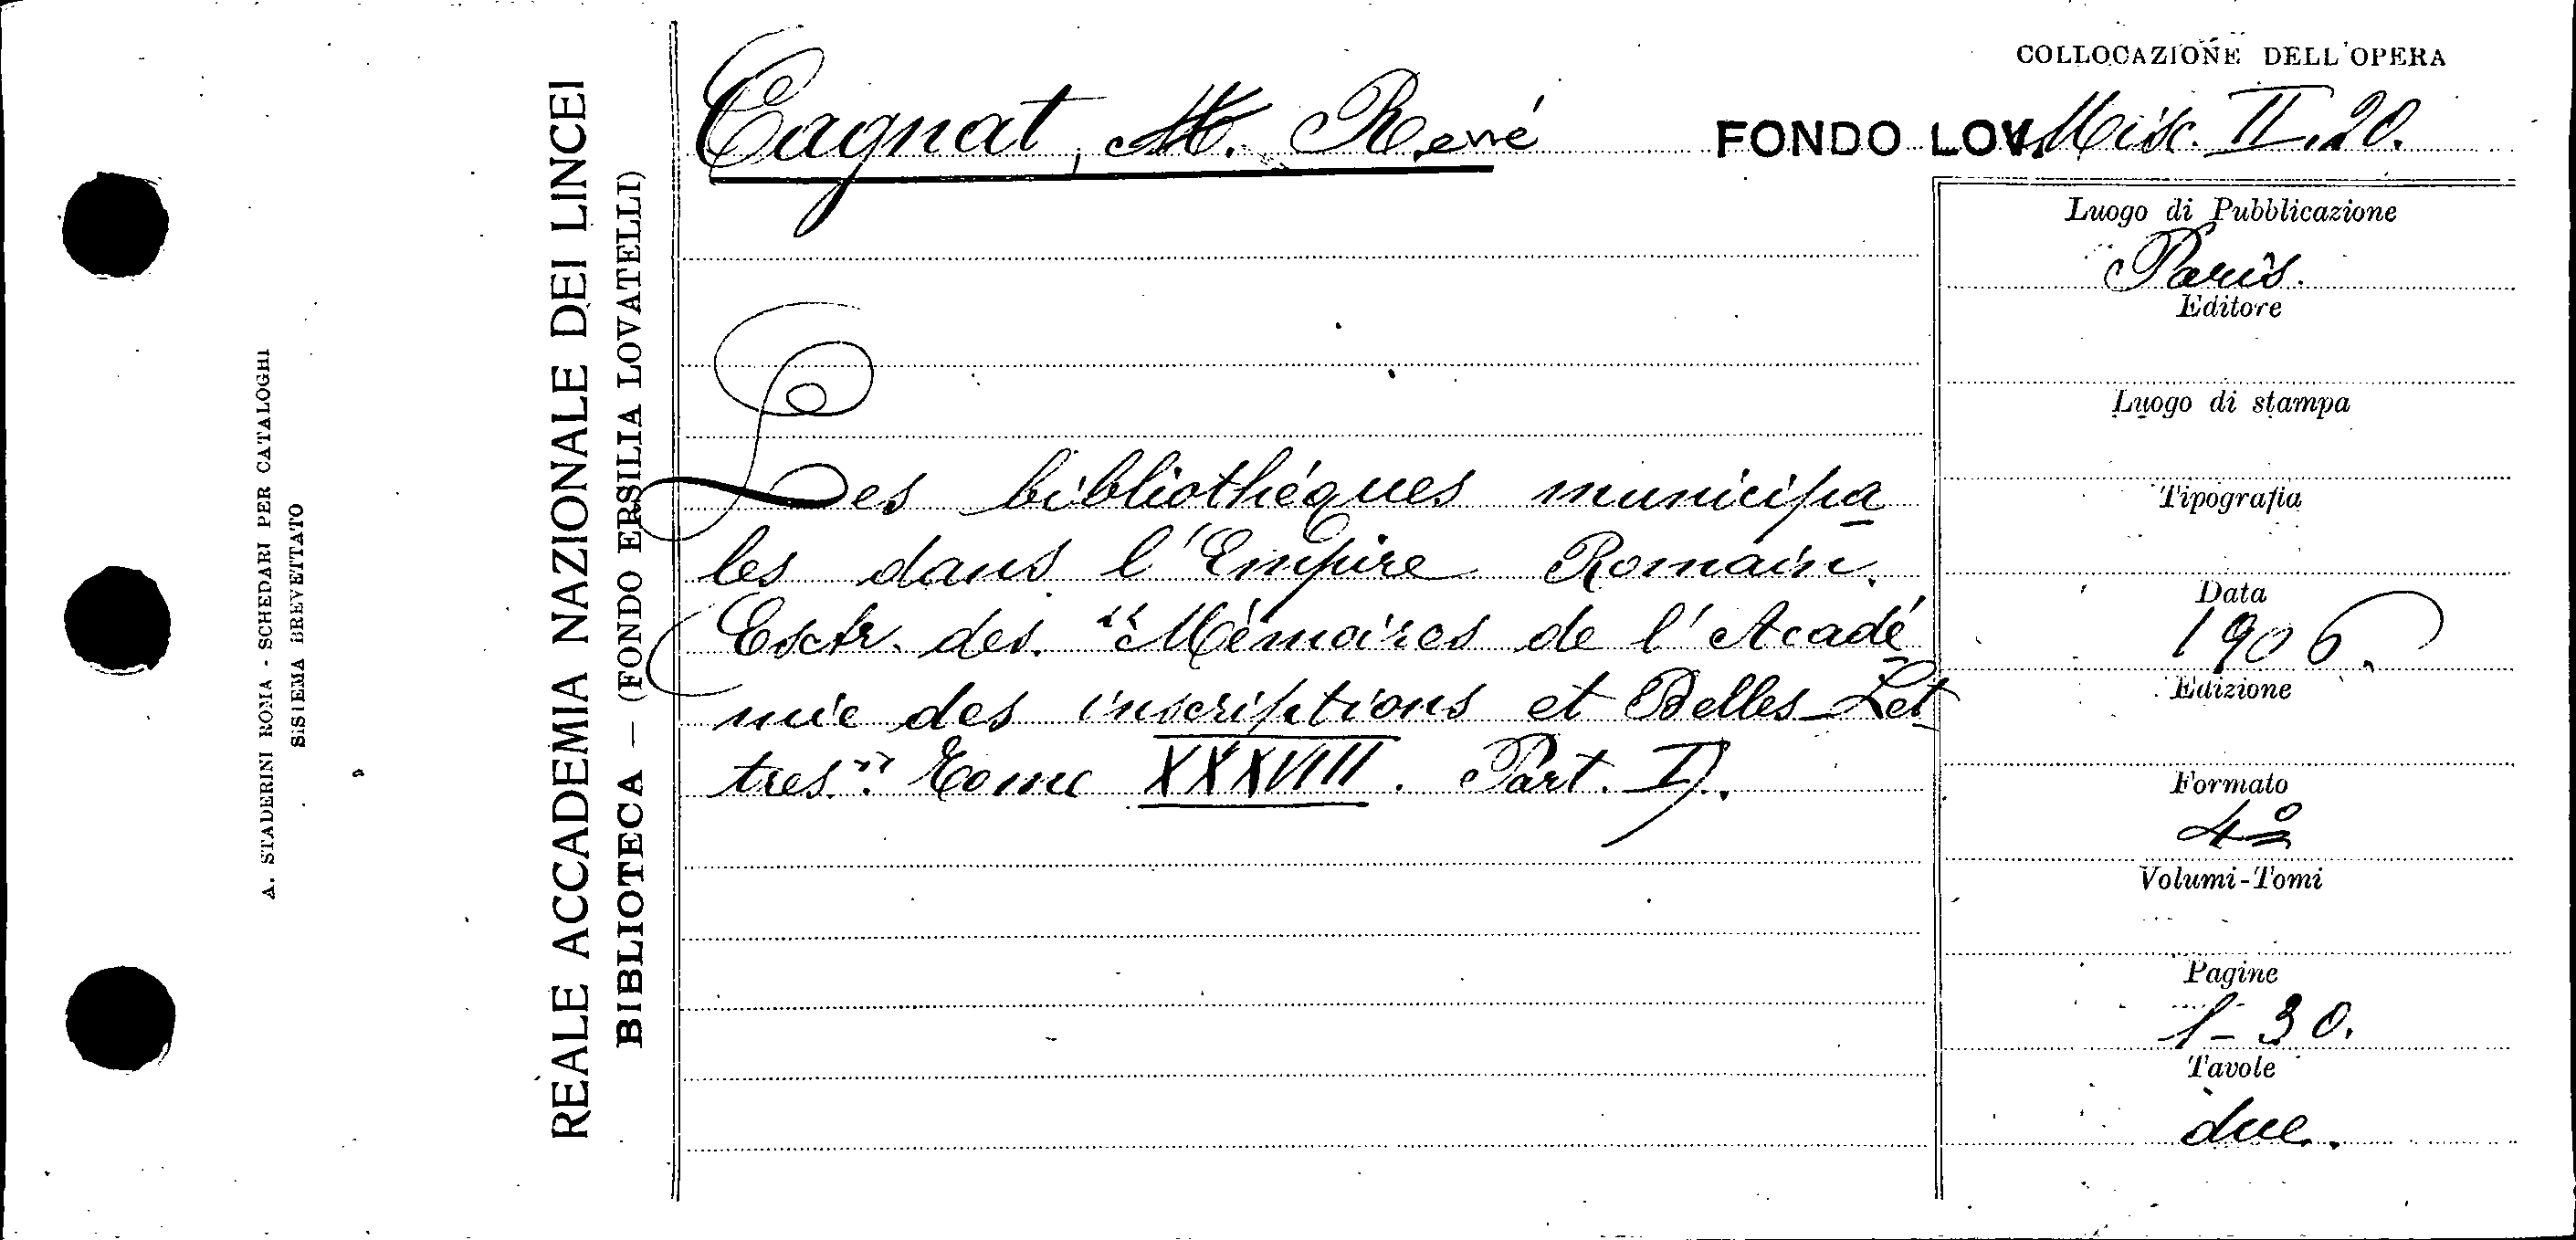 COLLOCAZIONE DELL'OPERA
Cagnat, M. René
FONDO LOV. Misc. II. 20.
Les bibliothéques municipa
les dans l'Empire Romain.
Esctr. des "Mémoires de l'Acadé
mie des inscriptions et Belles Let
tres" Tome XXXVIII. Part. I).
Luogo di Pubblicazione
Paris.
Editore
Luogo di stampa
Tipografia
Data
1906.
Edizione
Formato
4º
Volumi-Tomi
Pagine
1-30.
Tavole
due.
REALE ACCADEMIA NAZIONALE DEI LINCEI
BIBLIOTECA — (FONDO ERSILIA LOVATELLI)
A. STADERINI ROMA - SCHEDARI PER CATALOGHI
SISTEMA BREVETTATO